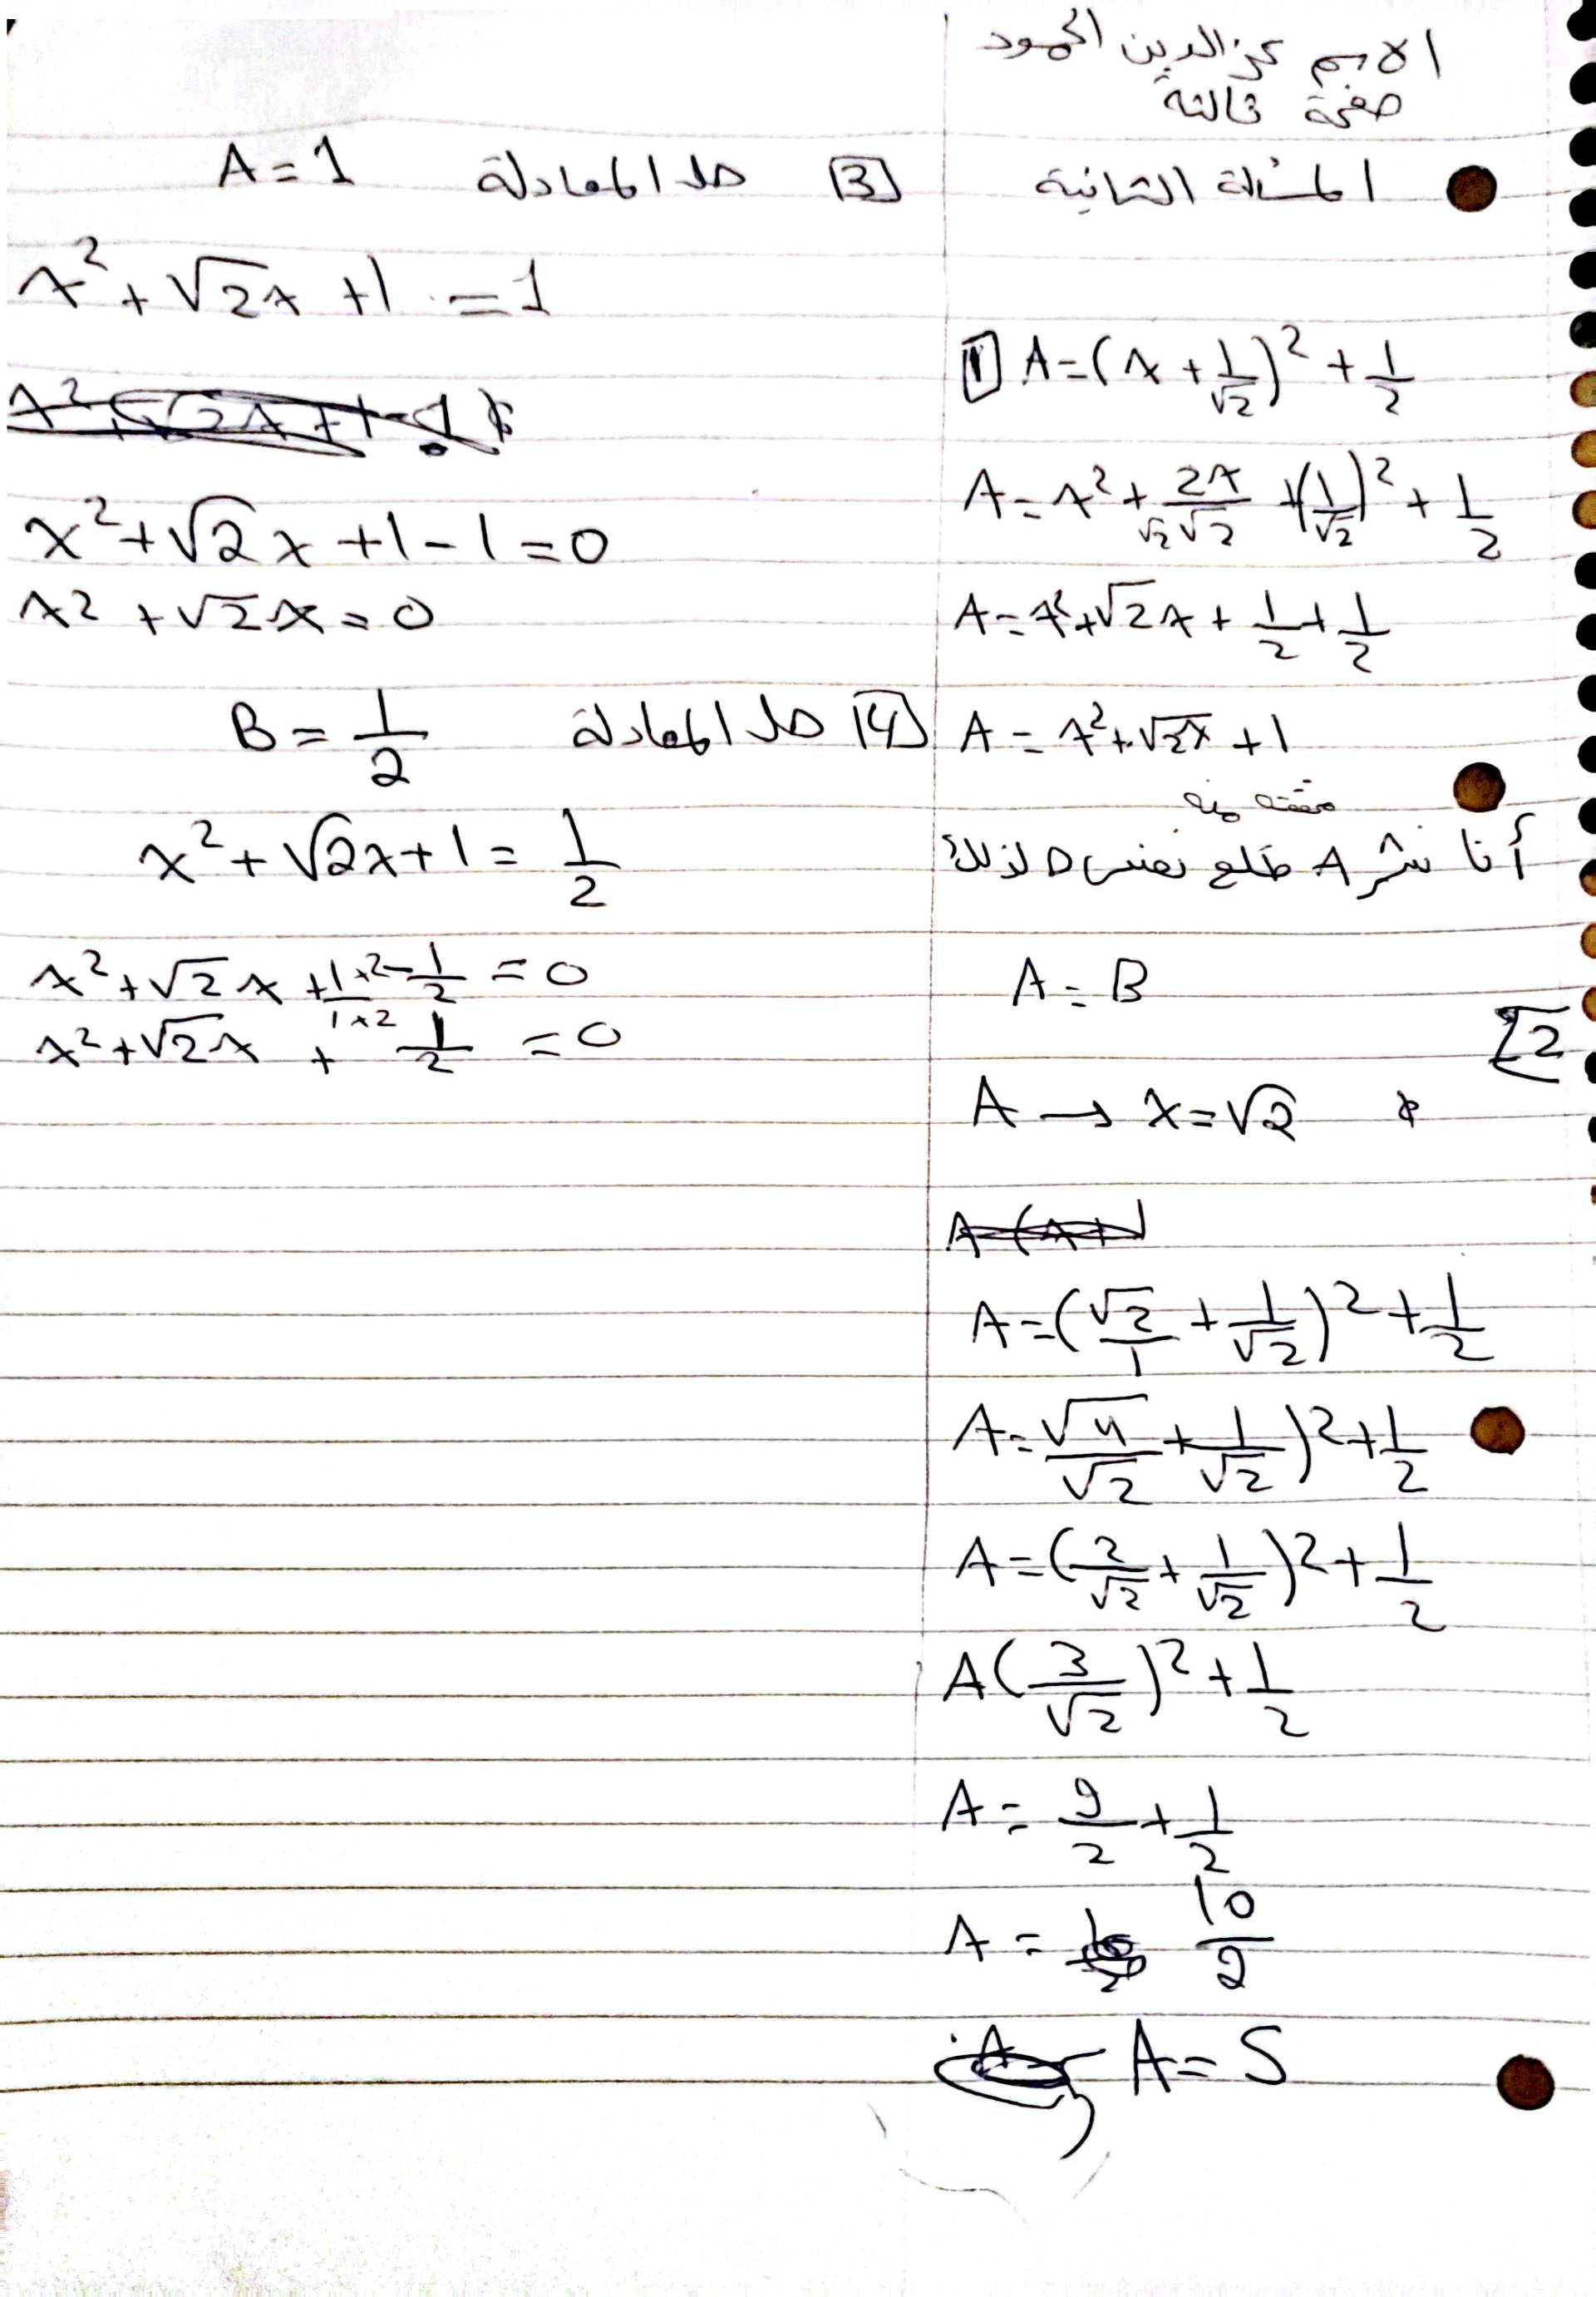 الاسم عز الدين المحمود
صفحة ثالثة
المسألة الثانية
1 A=(x+1/√2)²+1/2
A=x²+2x/√2 √2+(1/√2)²+1/2
A=x²+√2x+1/2+1/2
A=x²+√2x+1
أنا نشر A طلع نفس B لذلك
A=B
2
A→x=√2
A=(√2/1+1/√2)²+1/2
A=√4/√2+1/√2)²+1/2
A=(2/√2+1/√2)²+1/2
A(3/√2)²+1/2
A=9/2+1/2
A=10/2
A=5
3 حل المعادلة A=1
x²+√2x+1=1
x²+√2x+1-1=0
x²+√2x=0
4 حل المعادلة B=1/2
x²+√2x+1=1/2
x²+√2x+1×2/1×2-1/2=0
x²+√2x+1/2=0